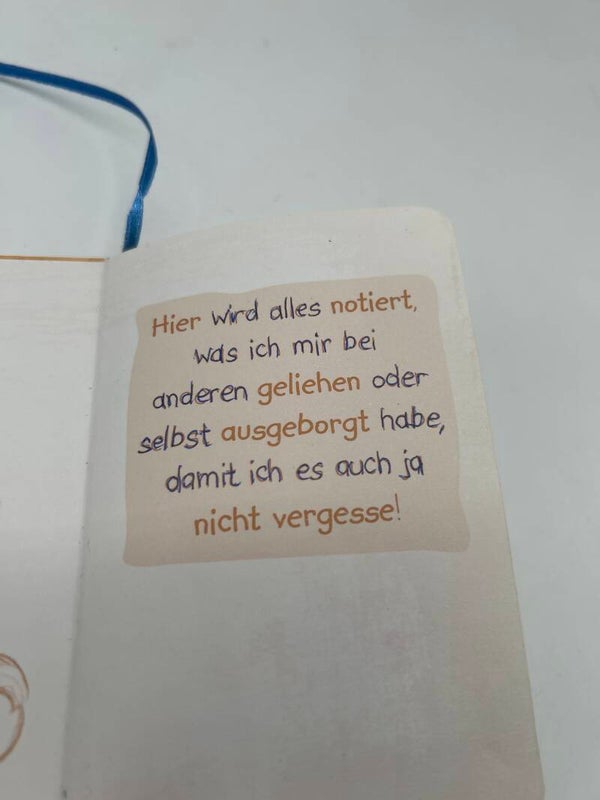 Hier wird alles notiert,
was ich mir bei
anderen geliehen oder
selbst ausgeborgt habe,
damit ich es auch ja
nicht vergesse!